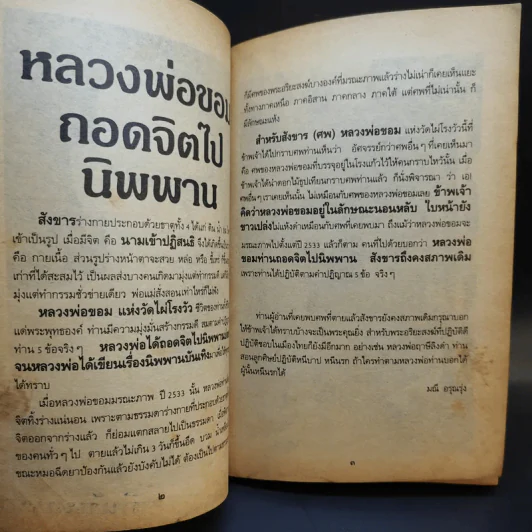 หลวงพ่อขอม
ถอดจิตไป
นิพพาน
สังขารร่างกายประกอบด้วยธาตุทั้ง ๔ ได้แก่ ดิน น้ำ
เข้าเป็นรูป เมื่อมีจิต คือ นามเข้าปฏิสนธิ จึงได้เกิดขึ้น
คือ กายเนื้อ ส่วนรูปร่างหน้าตาจะสวย หล่อ หรือ ขี้เหร่
เก่าที่ได้สะสมไว้ เป็นผลส่งบางคนเกิดมามุ่งแต่ทำกรรมดี
มุ่งแต่ทำกรรมชั่วช่ายเดียว พ่อแม่สั่งสอนเท่าไหร่ก็ไม่ฟัง
หลวงพ่อขอม แห่งวัดไผ่โรงวัว ชีวิตของท่าน
แต่พระพุทธองค์ ท่านมีความมุ่งมั่นสร้างกรรมดี
ท่าน 5 ข้อจริงๆ หลวงพ่อได้ถอดจิตไปนิพพาน
จนหลวงพ่อได้เขียนเรื่องนิพพานบันเทิง
ได้ทราบ
เมื่อหลวงพ่อขอมมรณะภาพ ปี 2533 นั้น
จิตทิ้งร่างแน่นอน เพราะตามธรรมดาร่างกายที่ประกอบด้วย
จิตออกจากร่างแล้ว ก็ย่อมแตกสลายไปเป็นธรรมดา
ของคนทั่วๆ ไป ตายแล้วไม่เกิน 3 วันก็ขึ้นอืด บวม
ขณะหมอฉีดยาป้องกันแล้วยังบังคับไม่ได้ ต้องเป็นไป
๒
ก็มีศพของพระอริยะสงฆ์บางองค์ที่มรณะภาพแล้วร่างไม่เน่าก็เคยเห็นแยะ
ทั้งทางภาคเหนือ ภาคอิสาน ภาคกลาง ภาคใต้ แต่ศพที่ไม่เน่านั้น ก็
มีลักษณะแห้ง
สำหรับสังขาร (ศพ) หลวงพ่อขอม แห่งวัดไผ่โรงวัวนี้ที่
ข้าพเจ้าได้ไปกราบศพท่านเห็นว่า อัศจรรย์กว่าศพอื่นๆ ที่เคยเห็นมา
คือ ศพของหลวงพ่อขอมที่บรรจุอยู่ในโรงแก้วไว้ให้คนกราบไหว้นั้น เมื่อ
ข้าพเจ้าได้นำดอกไม้ธูปเทียนกราบศพท่านแล้ว ก็นั่งพิจารณา ว่า เอ
ศพอื่นๆ เราเคยเห็นนั้น ไม่เหมือนกับศพของหลวงพ่อขอมเลย ข้าพเจ้า
คิดว่าหลวงพ่อขอมอยู่ในลักษณะนอนหลับ ใบหน้ายัง
ขาวเปล่งไม่แห้งดำเหมือนกับศพที่เคยพบมา ถึงแม้ว่าหลวงพ่อขอมจะ
มรณะภาพไปตั้งแต่ปี 2533 แล้วก็ตาม คนที่ไปด้วยบอกว่า หลวงพ่อ
ขอมท่านถอดจิตไปนิพพาน สังขารถึงคงสภาพเดิม
เพราะท่านได้ปฏิบัติตามคำปฏิญาณ 5 ข้อ จริงๆ
ท่านผู้อ่านที่เคยพบศพที่ตายแล้วสังขารยังคงสภาพเดิมกรุณาบอก
ให้ข้าพเจ้าได้ทราบบ้างจะเป็นพระคุณยิ่ง สำหรับพระอริยะสงฆ์ที่ปฏิบัติดี
ปฏิบัติชอบในเมืองไทยก็ยังมีอีกมาก อย่างเช่น หลวงพ่อฤาษีลิงดำ ท่าน
สอนลูกศิษย์ปฏิบัติหนีบาป หนีนรก ถ้าใครทำตามหลวงพ่อท่านบอกได้
ผู้นั้นหนีนรกได้
มณี อรุณรุ่ง
๓